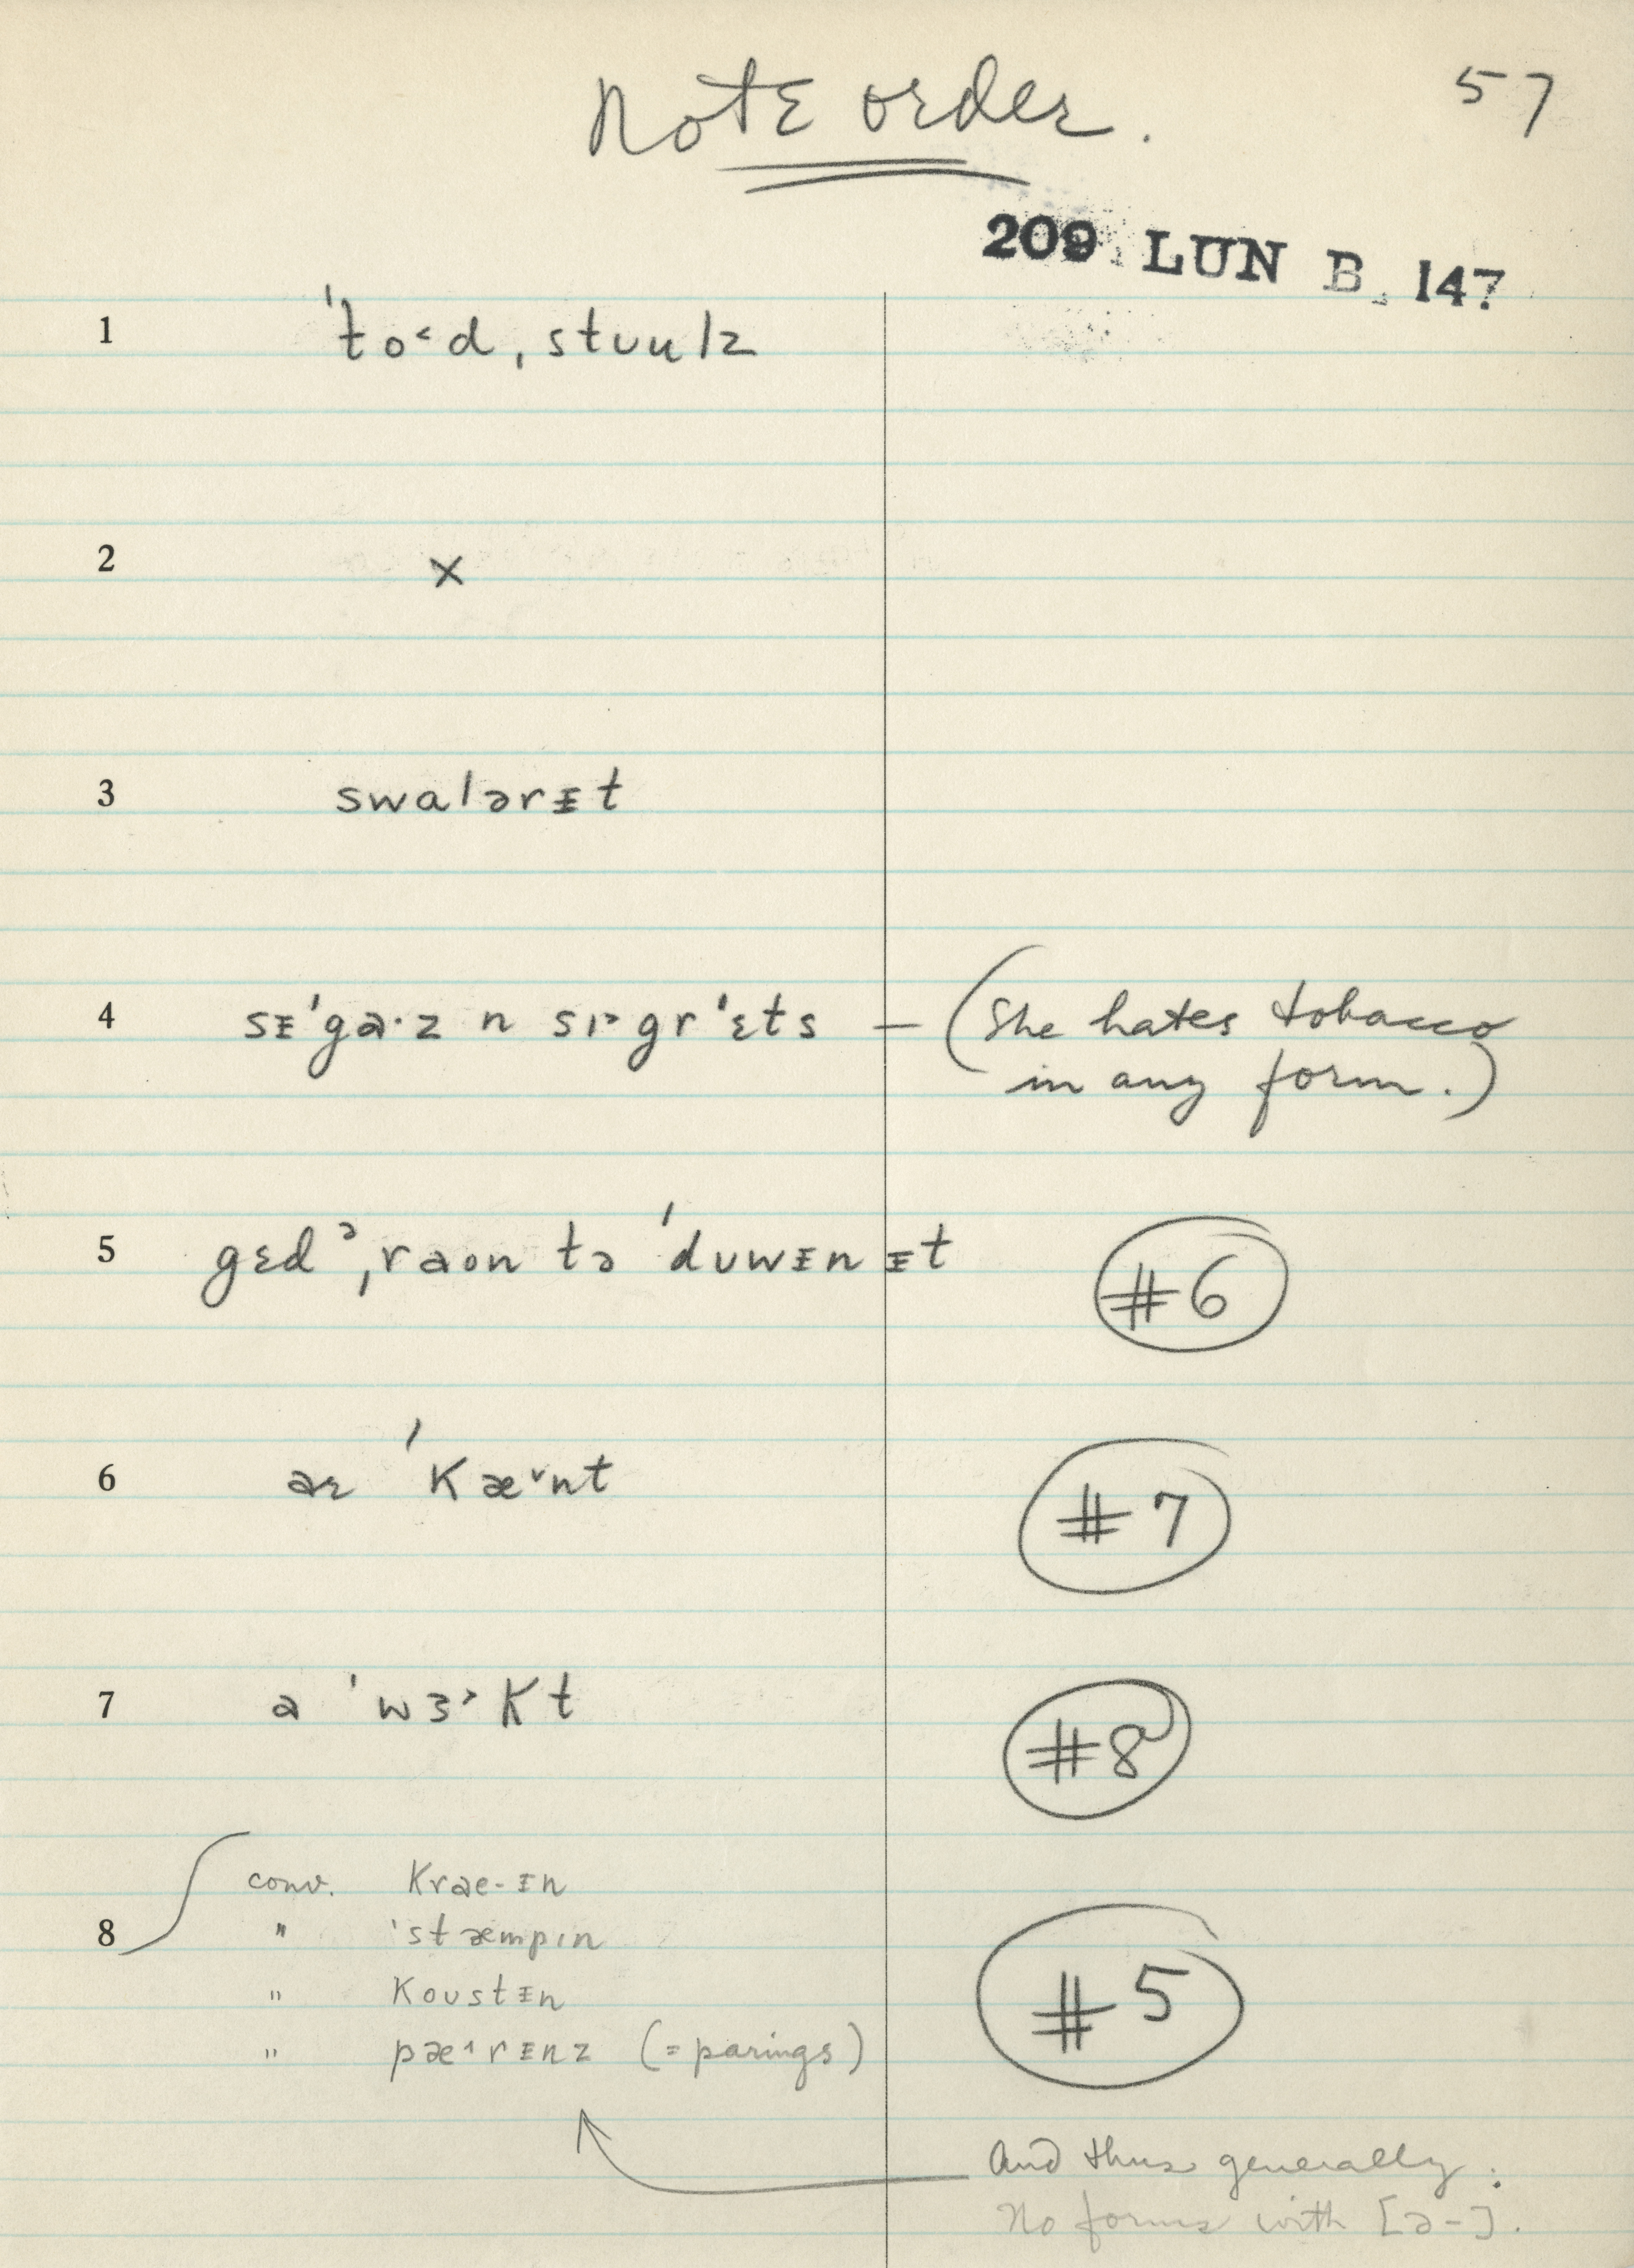 Note order.
57
209 LUN B. 147
1 ˈto˂d ˌstʊulz
2 x
3 swalərᵻt
4 sᵻˈga·z n sɪ˃grˈɛts — (She hates tobacco
in any form.)
5 gɛdᵊˌraʊn tə ˈdʊwᵻnᵻt #6
6 aɚ ˈkæ˅nt #7
7 a ˈwɜ˃kt #8
8 conv. kraɛ-ᵻn
" ˈstæmpɪn #5
" koustᵻn
" pæ˄rᵻnz (= parings)
And thus generally:
No forms with [ə-].